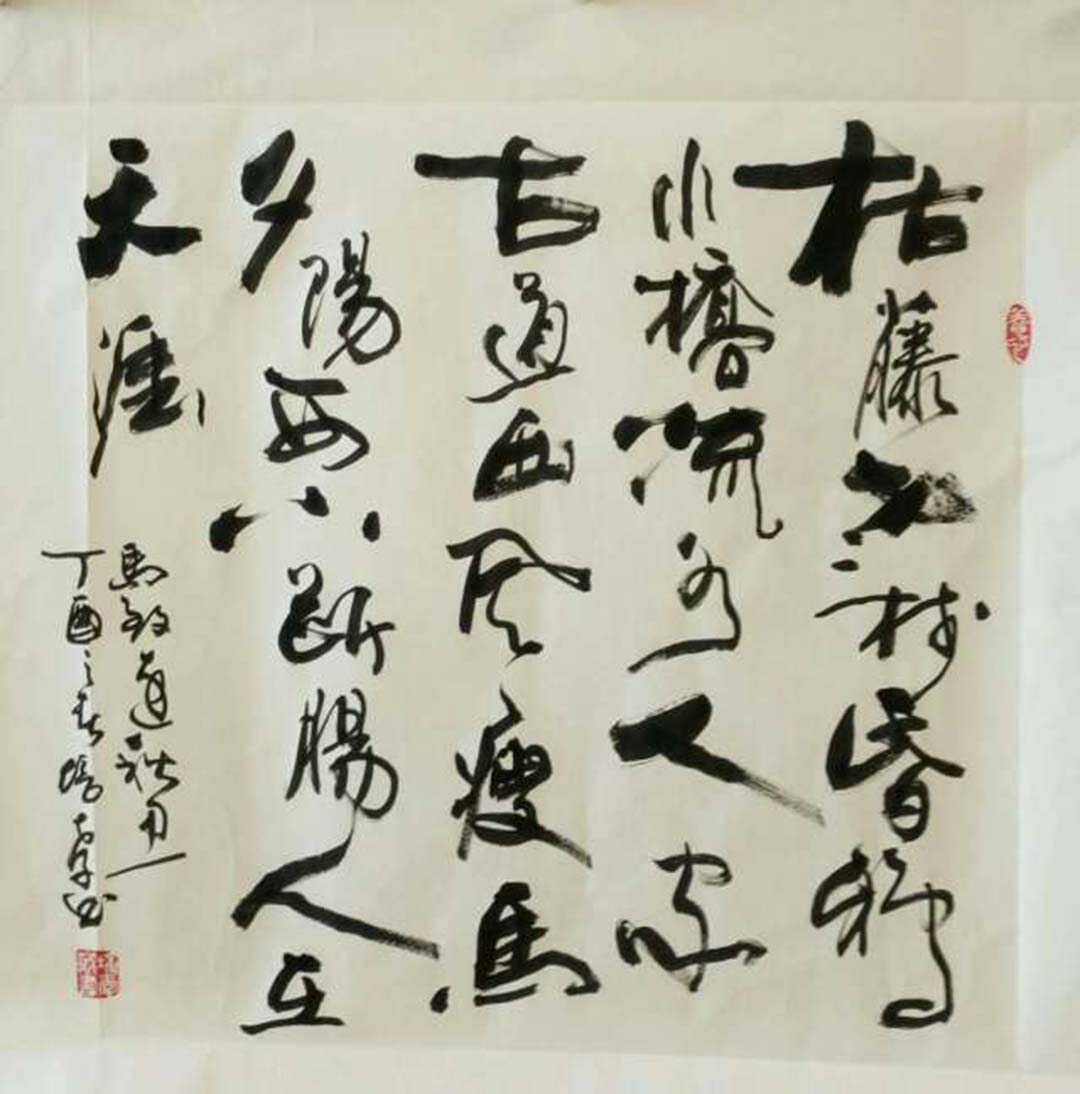 枯藤老樹昏鴉
小橋流水人家
古道西風瘦馬
夕陽西下斷腸人在
天涯
馬致遠秋思
丁酉之春